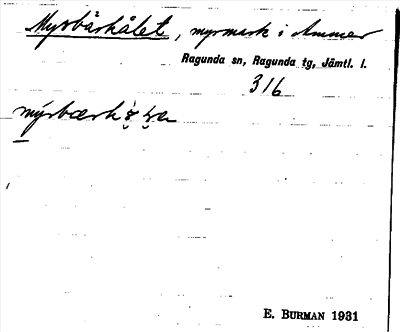 Myrbärhålet, myrmark i Ammer
Ragunda sn, Ragunda tg, Jämtl. l.
316
E. BURMAN 1931